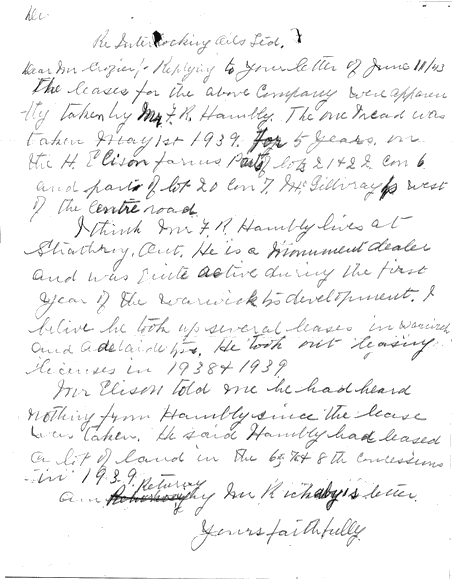 Re Interlocking Oils Ltd.
Dear Mr Crozier:- Replying to your letter of June 11/43
The leases for the above Company were apparen
-tly taken by Mr F. R. Hambly. The one I read was
taken May 1st 1939. For 5 years. on
the H. Elison farms Parts of lots 21 & 22 Con 6
and parts of lot 20 Con 7. McGillivray tp west
of the Centre road
I think Mr F. R. Hambly lives at
Strathroy. Ont. He is a Monument dealer
and was quite active during the first
year of the Warwick tp development. I
belive he took up several leases in Warwick
and Adelaide tps. He took out leasing
licenses in 1938 & 1939
Mr Elison told me he had heard
nothing from Hambly since the lease
was taken. He said Hambly had leased
a lot of land in the 6th 7th & 8th concessions
in 1939.
Returning
am by Mr letter.
Yours faithfully